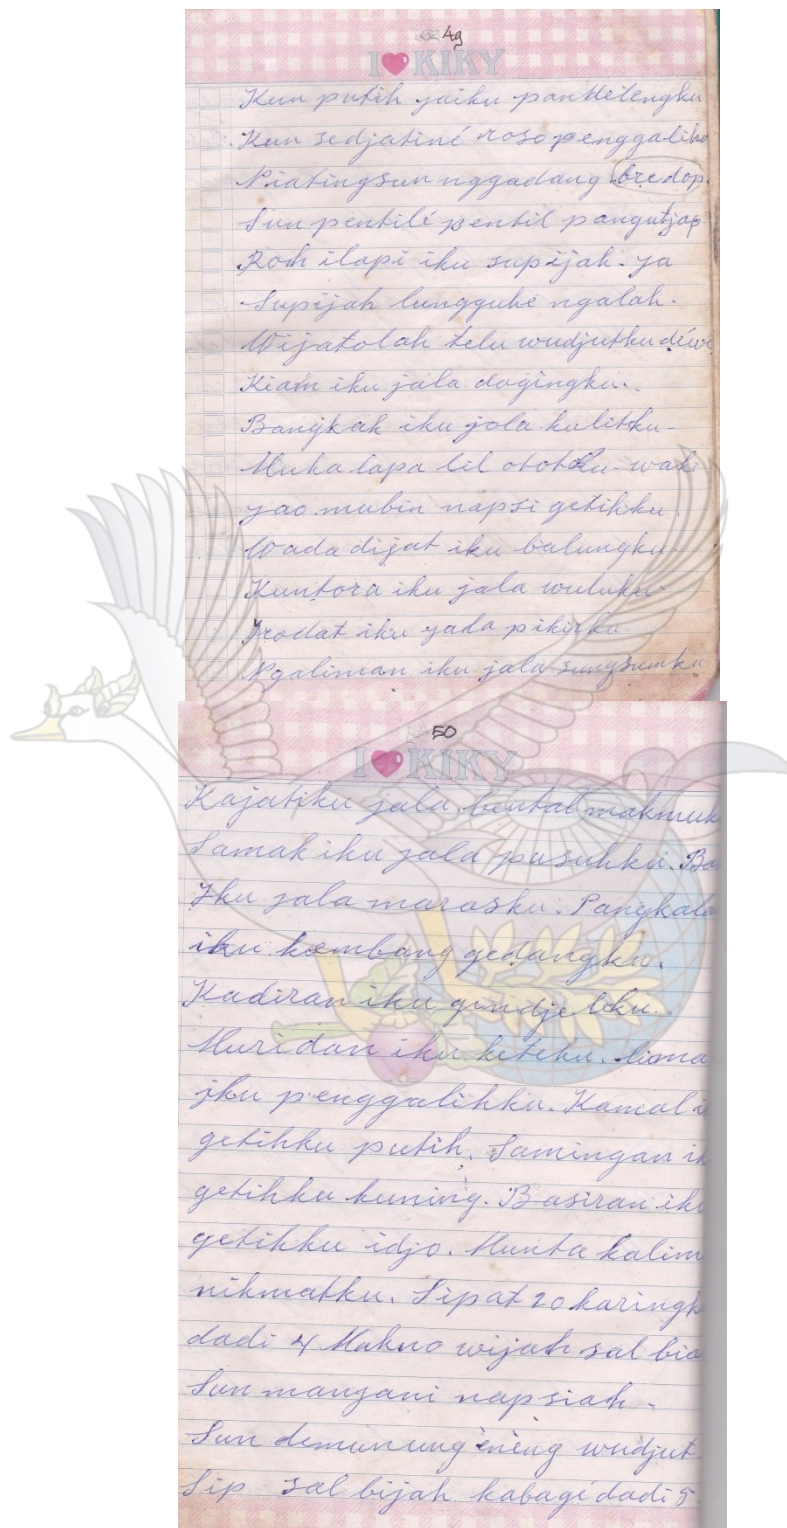 49
I KIKY
Kun putih yaiku pandelengku
Kun sedjatiné roso penggaliho
Niatingsun nggadang bredop.
Sun pentilé pentil pangutjap
Roch ilapi iku supijah. ya
Supijah lungguhe ngalah.
Wijatolah telu wudjutku déwe
Kiam iku jala dagingku.
Bangkah iku jola kulitku-
Muka lapa lil ototku- wak
yao mubin napsi getihku.
Wada dijat iku balungku-
Kuntora iku jala wuluku-
Irodat iku yada pikirku
Ngaliman iku jala sungsumku
50
I KIKY
Kajatiku jala bental makmuk
Samak iku jala pusuhku. Ba
Iku jala marasku. Pangkala
iku kembang gedangku.
Kadiran iku gindjelku.
Muridan iku keteku.
iku penggalihku. Kamal i
getihku putih. Samingan ik
getihku kuning. Basiran iku
getihku idjo. Munta kalim
nikmatku. Sipat 20 karingk
dadi 4 Makno wijah sal bia
Sun mangani napsiah.
Sun demunung eneng wudjut
Sip sal bijah kabagi dadi 5.